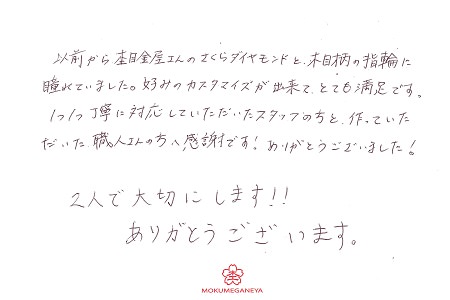 以前から杢目金屋さんのさくらダイヤモンドと、木目柄の指輪に
憧れていました。好みのカスタマイズが出来て、とても満足です。
1つ1つ丁寧に対応していただいたスタッフの方と、作っていた
だいた職人さんの方へ感謝です!ありがとうございました!
2人で大切にします!!
ありがとうございます。
MOKUMEGANEYA